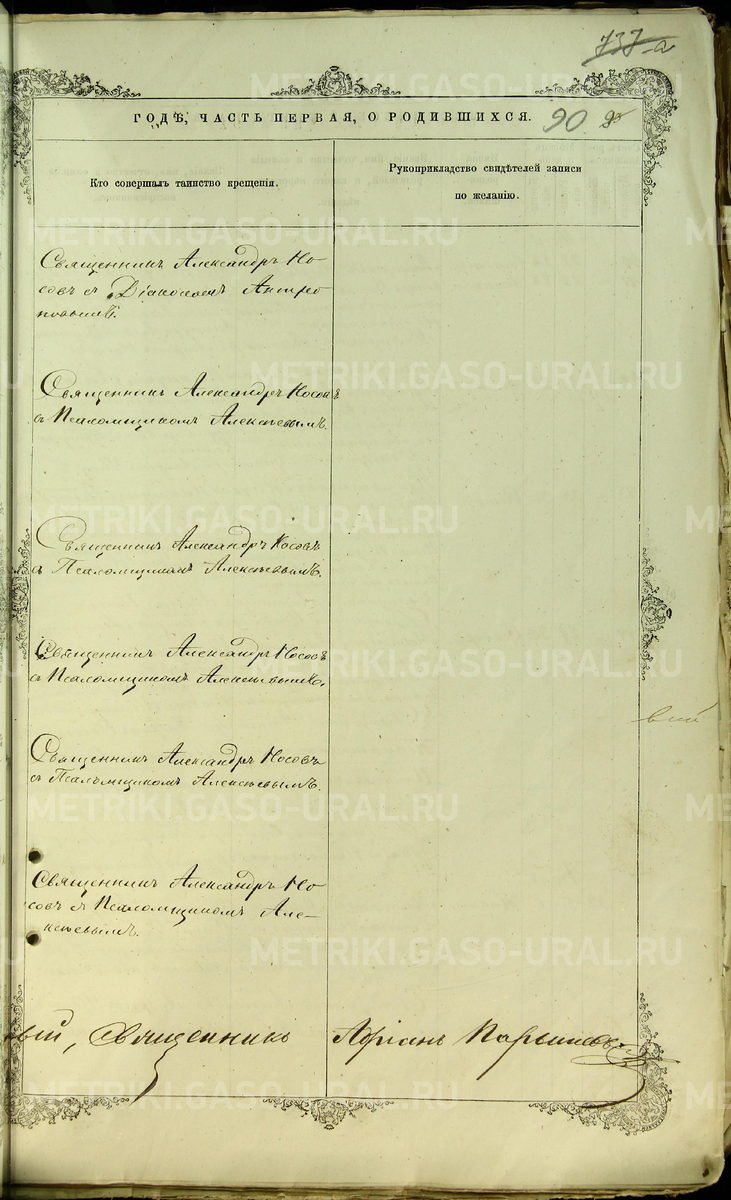 737-а
ГОДѢ, ЧАСТЬ ПЕРВАЯ, О РОДИВШИХСЯ.
90
Кто совершалъ таинство крещенія.
Рукоприкладство свидѣтелей записи
по желанію.
Священникъ Александръ Но-
совъ съ Діакономъ Антро
повымъ.
Священникъ Александръ Носовъ
съ Псаломщикомъ Алексѣевымъ.
Священникъ Александръ Носовъ
съ Псаломщикомъ Алексѣевымъ.
Священникъ Александръ Носовъ
съ Псаломщикомъ Алексѣевымъ.
вый
Священникъ Александръ Носовъ
съ Псаломщикомъ Алексѣевымъ.
Священникъ Александръ Но-
совъ съ Псаломщикомъ Але-
ксѣевымъ.
Священникъ Адріанъ
METRIKI.GASO-URAL.RU